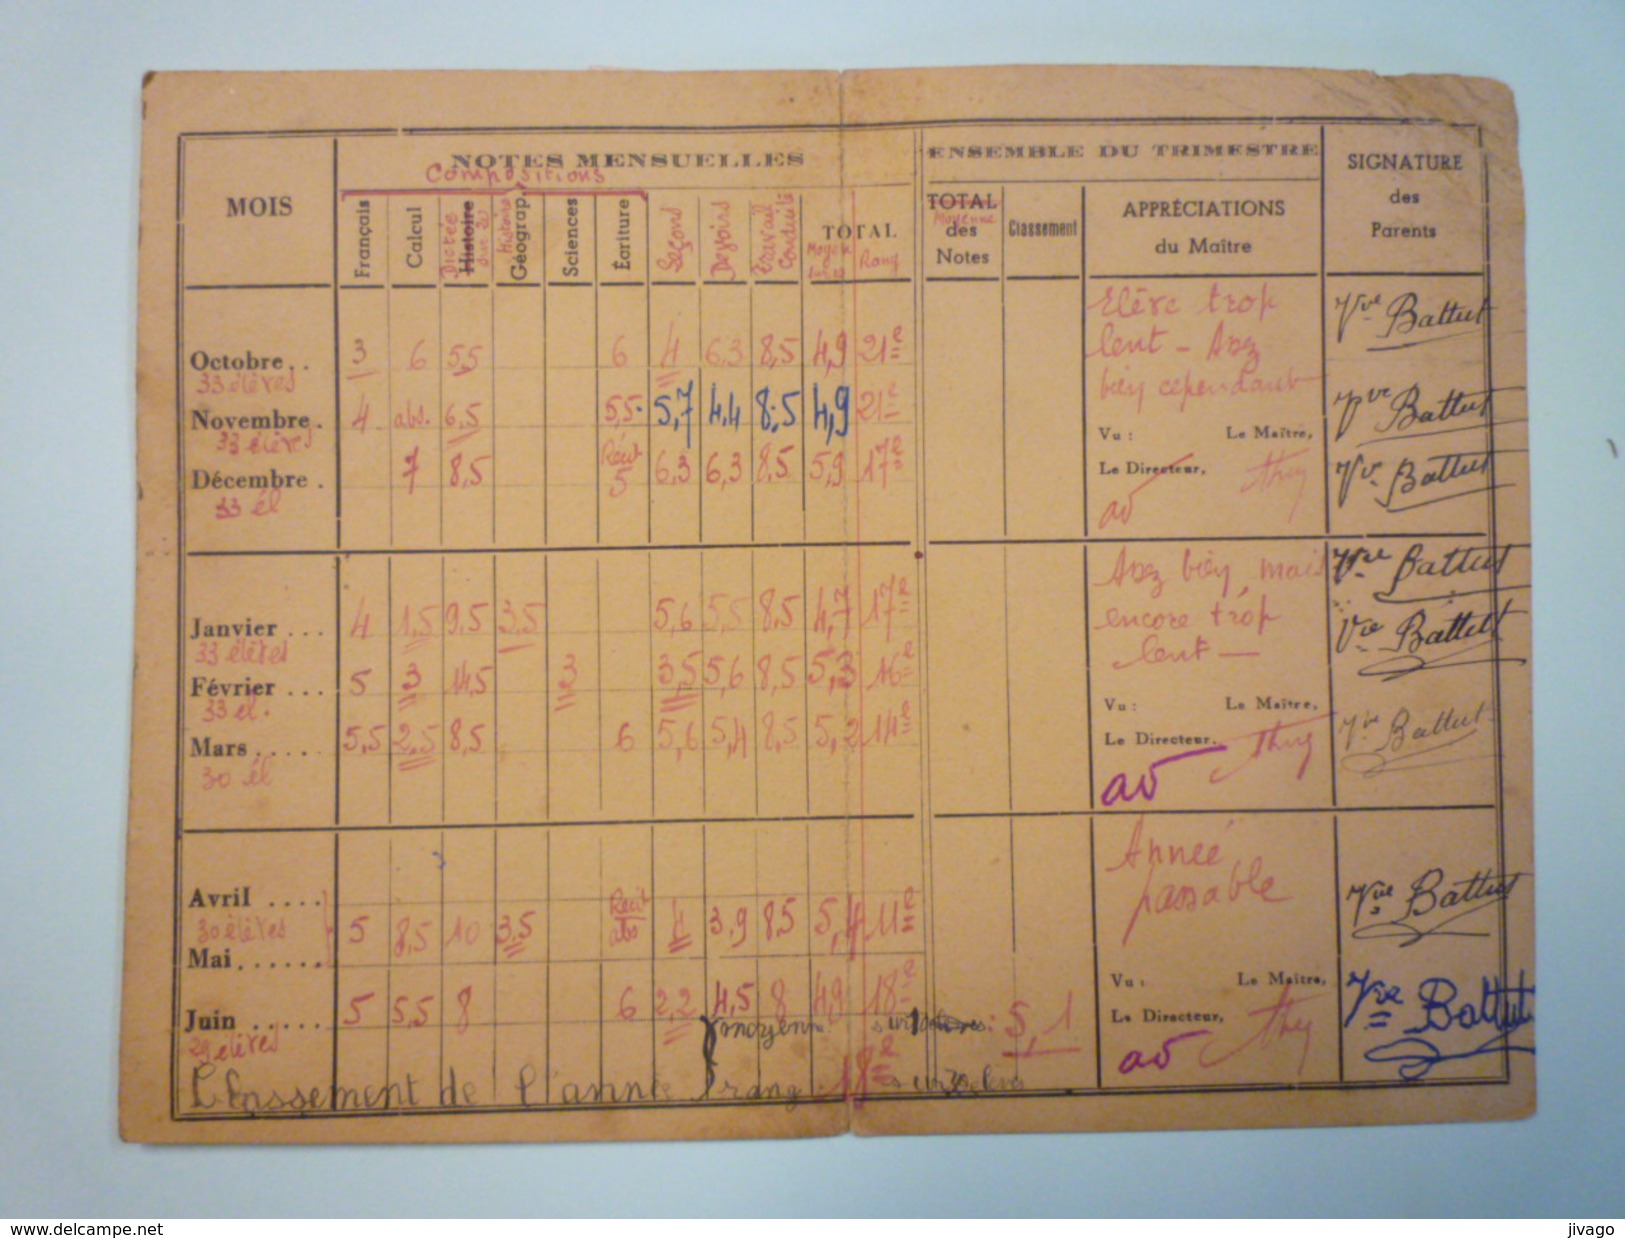 NOTES MENSUELLES
Compositions
ENSEMBLE DU TRIMESTRE
SIGNATURE
des
Parents
MOIS
Français
Calcul
Dictée
Histoire
Histoire
Géograp.
Sciences
Écriture
Leçons
Devoirs
Travail
TOTAL
Rang
TOTAL
Moyenne
des
Notes
Classement
APPRÉCIATIONS
du Maître
Octobre.. 3 6 5,5 6 4 6,3 8,5 4,9 21e
33 élèves
Elève trop
lent - Assez
bien cependant
Vve Battut
Novembre. 4 abs. 6,5 5,5 5,7 4,4 8,5 4,9 21e
33 élèves
Vve Battut
Vu : Le Maître,
Le Directeur,
Décembre . 7 8,5 Récit 5 6,3 6,3 8,5 5,9 17e
33 él
Vve Battut
Janvier ... 4 1,5 9,5 3,5 5,6 5,5 8,5 4,7 17e
33 élèves
Assez bien, mais
encore trop
lent -
Vve Battut
Février ... 5 3 4,5 3 3,5 5,6 8,5 5,3 16e
33 él.
Vve Battut
Vu : Le Maître,
Le Directeur.
Mars..... 5,5 2,5 8,5 6 5,6 5,4 8,5 5,2 14e
30 él
Vve Battut
Année
passable
Avril ....
30 élèves 5 8,5 10 3,5 Récit abs 4 3,9 8,5 5,4 11e
Mai......
Vve Battut
Vu : Le Maître,
Le Directeur,
Juin ..... 5 5,5 8 6 2,2 4,5 8 4,9 18e
29 élèves
Vve Battut
moyenne sur 10 : 5,1
Classement de l'année rang : 18e
www.delcampe.net
jivago